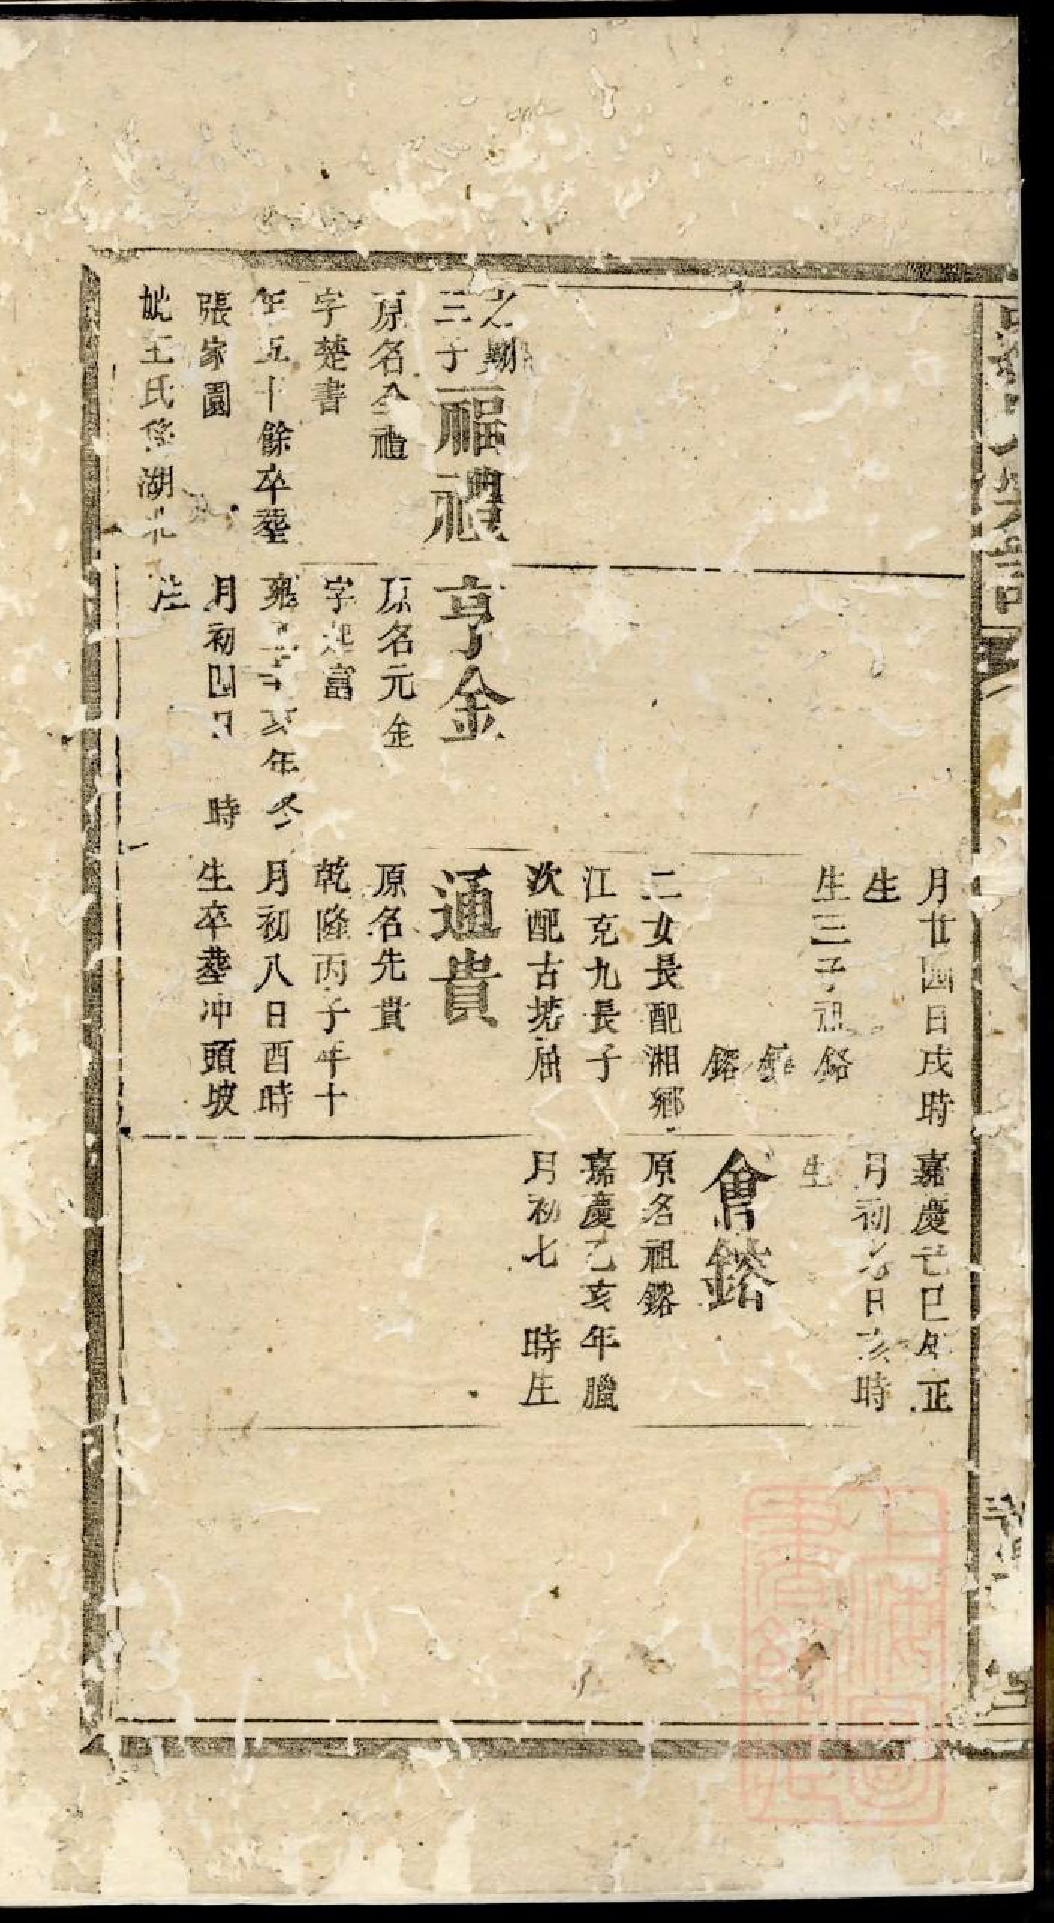 之剛
三子福禮
原名全禮
字楚書
年五十餘卒葬
張家園
妣王氏係湖北
亨金
原名元金
字起富
雍 亥年冬
月初四日 時
生
月廿四日戌時
生
生三子祖鉻
鎔
二女長配湘鄉
江克九長子
次配古塘屈
通貴
原名先貴
乾隆丙子年十
月初八日酉時
生卒葬冲頭坡
嘉慶己巳年正
月初 日亥時
生
會鎔
原名祖鎔
嘉慶乙亥年臘
月初七 時生
上海圖
書館藏